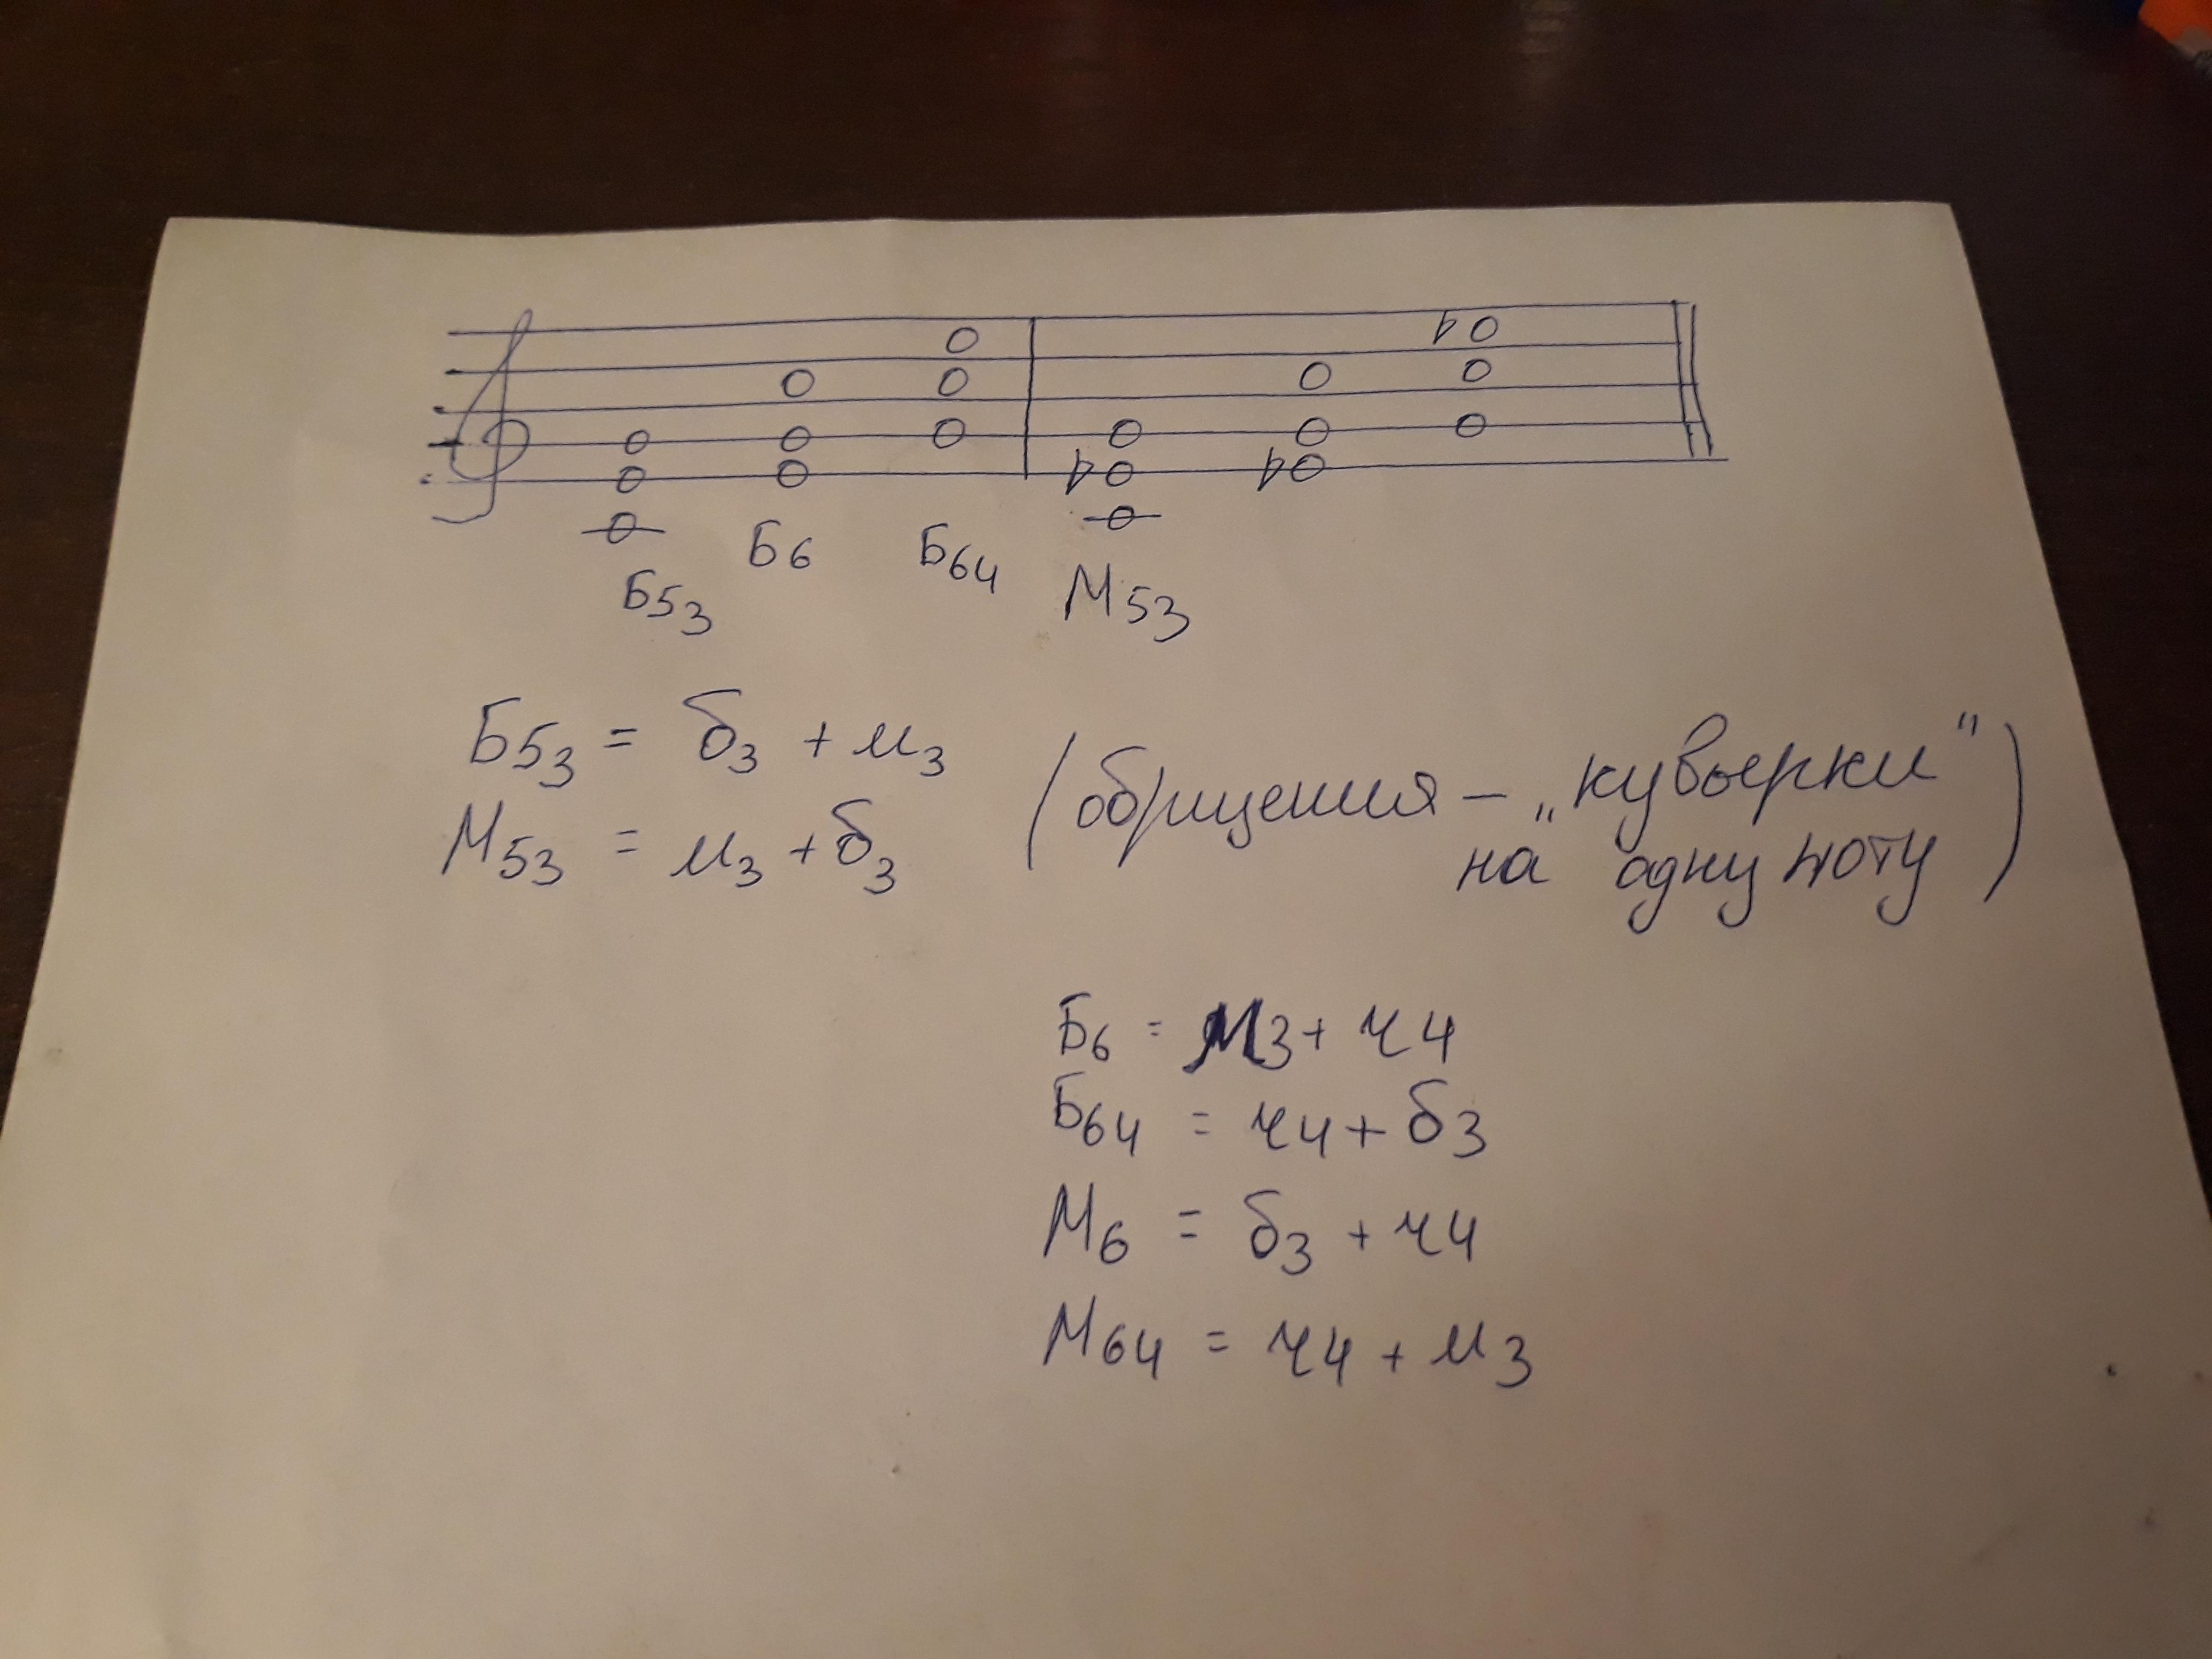 Б53 Б6 Б64 М53
Б53 = б3 + м3
М53 = м3 + б3
(обращения – „кувырки"
на одну ноту)
Б6 = м3 + ч4
Б64 = ч4 + б3
М6 = б3 + ч4
М64 = ч4 + м3